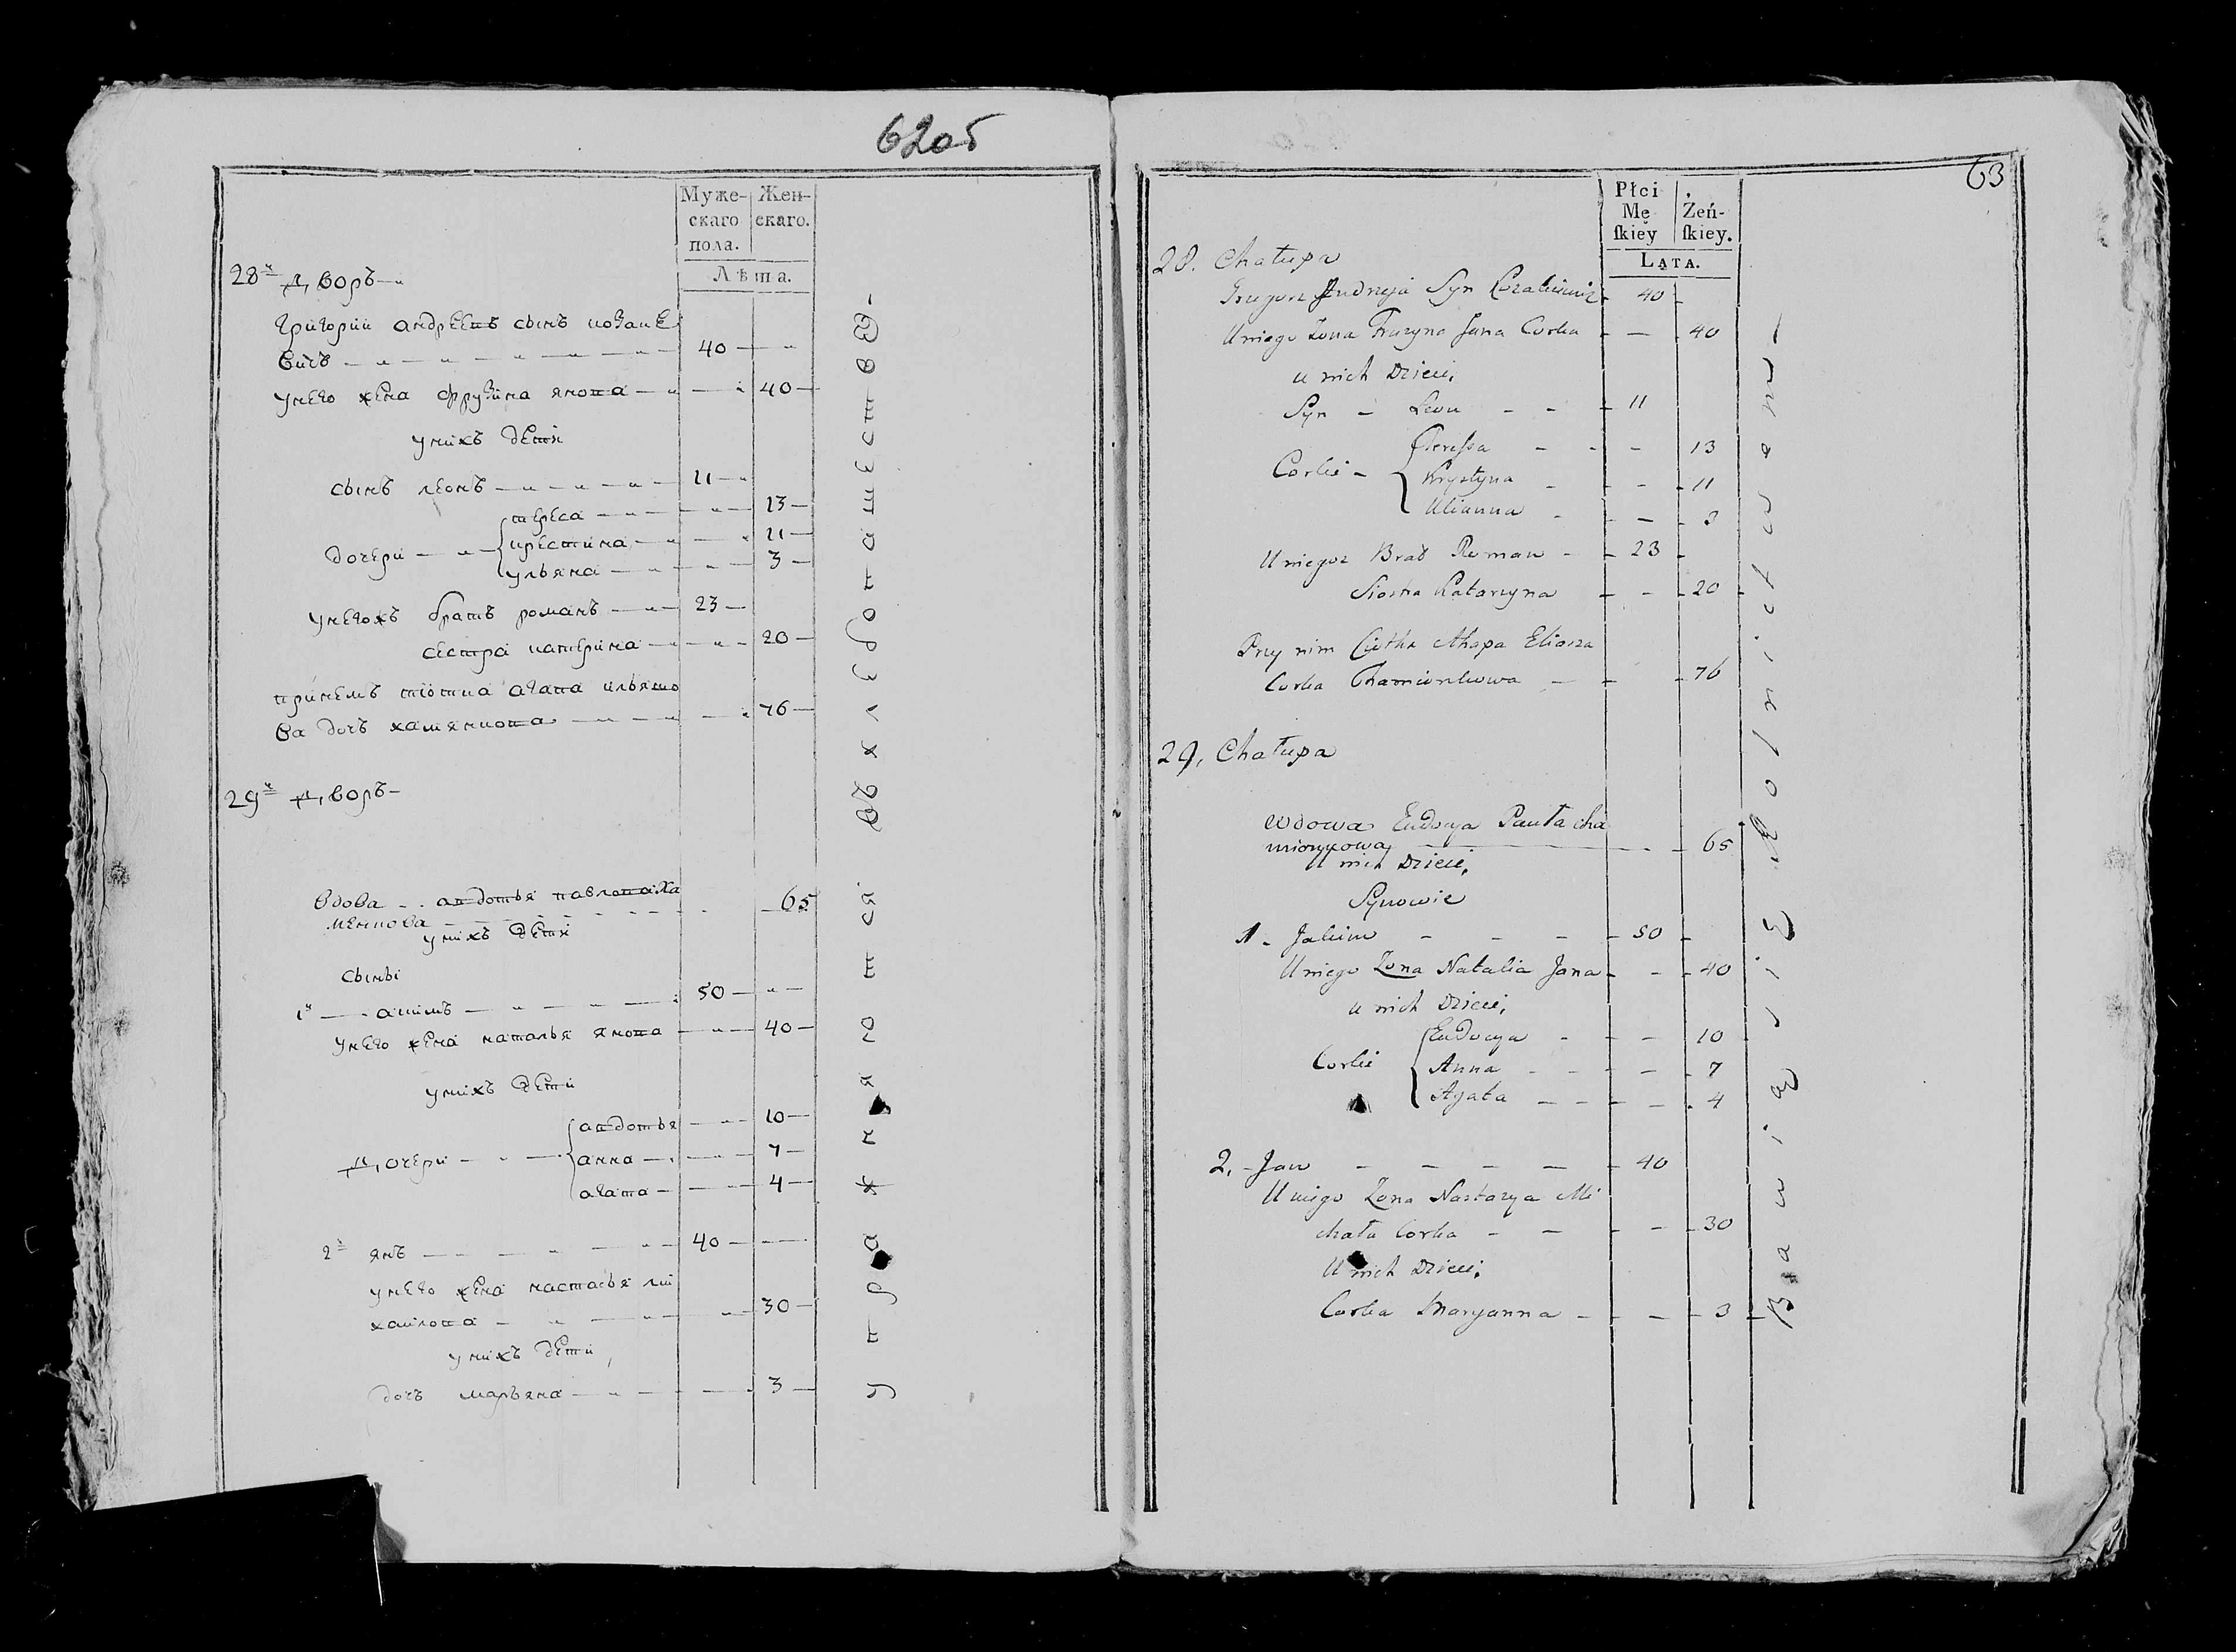 62об
Муже-
скаго
пола.
Жен-
скаго.
Лѣта.
28й дворъ
григории андреевъ сынъ козаке
вичъ 40
унего жена фрузина янова 40
унихъ дети
сынъ леонъ 11
тереса 13
дочери крестина 11
ульяна 3
унегожъ братъ романъ 23
сестра катерина 20
принемъ тіотка агапа ильяшо
ва дочъ хамянкова 76
29й дворъ
вдова авдотья павлова ха
менкова 65
унихъ дети
сыны
1й акимъ 50
унего жена наталья янова 40
унихъ дети
авдотья 10
дочери анна 7
агата 4
2й янъ 40
унего жена настасья ми
хаилова 30
унихъ дети,
дочъ марьяна 3
упражняются въ хлебопашестве
63
Płci
Mę-
skiey
Żeń-
skiey.
LATA.
28. Chałupa
Grzegorz Andrzeja Syn 40
Uniego Zona Fruzyna Jana Corka 40
u nich Dzieci,
Syn - Leon 11
Teressa 13
Corki - Krystyna 11
Ulianna 3
Uniegoz Brat Roman 23
Siostra Katarzyna 20
Przy nim Ciotka Ahapa Eliasza
Corka Chamionkowa 76
29, Chałupa
Wdowa Eudocya Pawła Cha
mionkowa 65
U nich Dzieci,
Synowie
1. Jakim 50
Uniego Zona Natalia Jana 40
u nich Dzieci,
Eudocya 10
Corki Anna 7
Agata 4
2, Jan 40
Uniego Zona Nastazya Mi
chała Corka 30
U nich Dzieci,
Corka Maryanna 3
Bawią się Rolnictwem